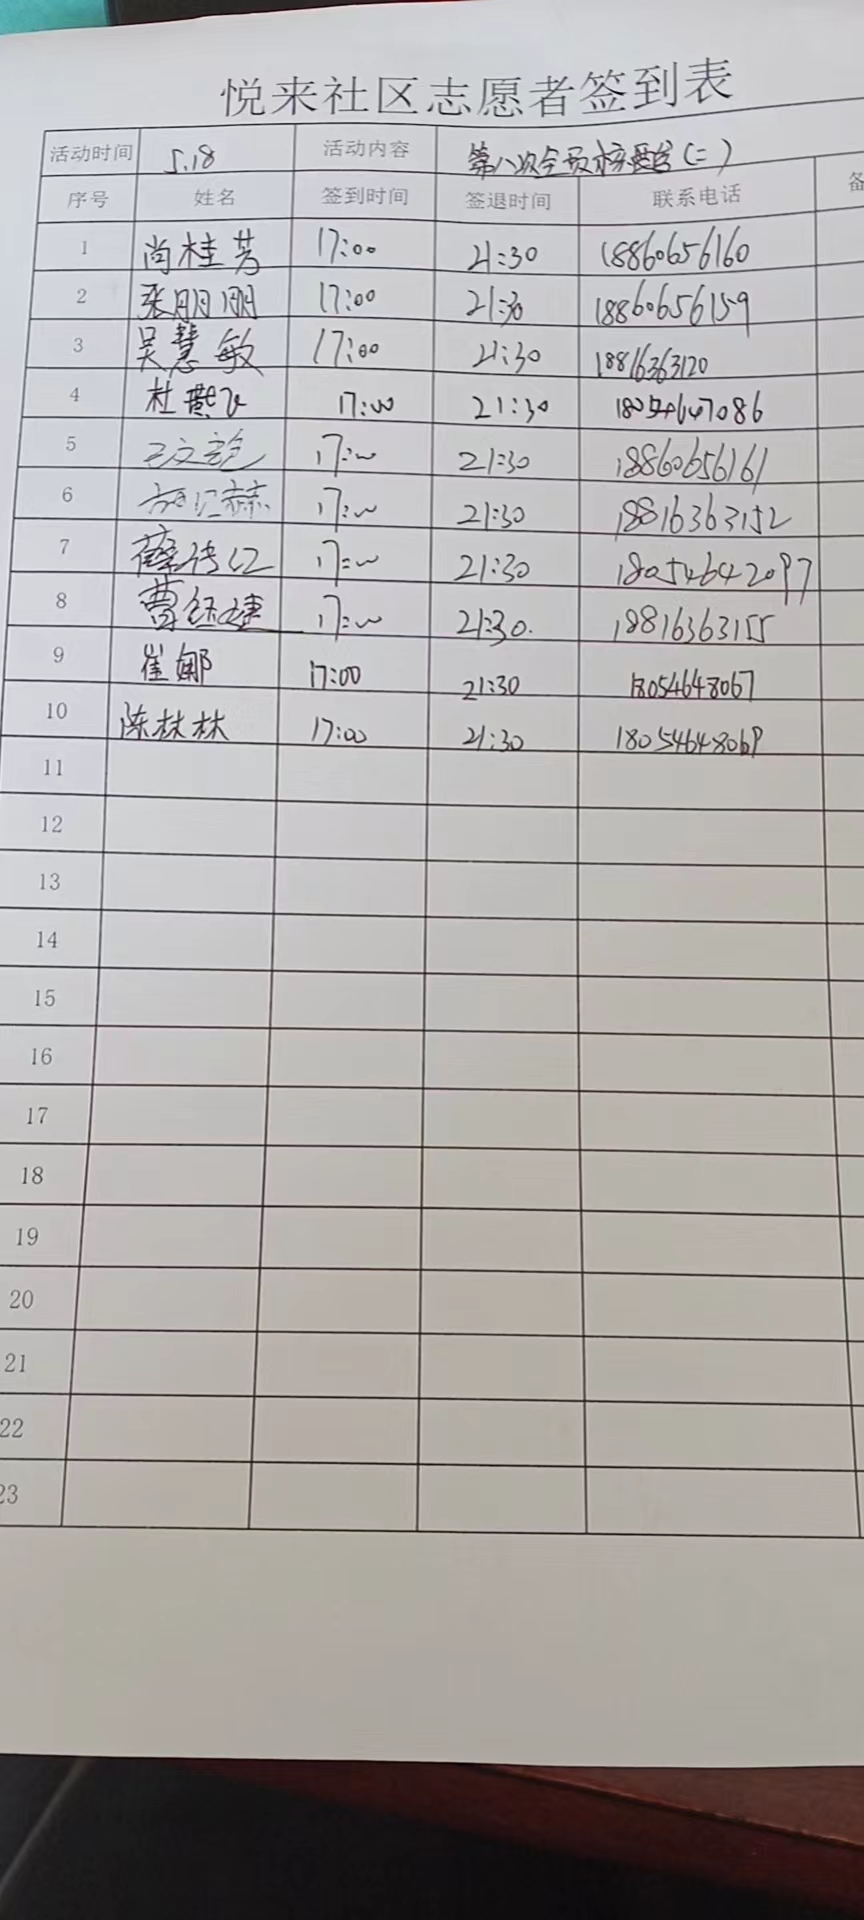 悦来社区志愿者签到表
活动时间 5.18 活动内容 第八次全员核酸(二)
序号 姓名 签到时间 签退时间 联系电话 备
1 尚桂芳 17:00 21:30 18860656160
2 张朋朋 17:00 21:30 18860656159
3 吴慧敏 17:00 21:30 18816363120
4 杜 17:00 21:30 18054647086
5 17:00 21:30 18860656161
6 17:00 21:30 18816363152
7 薛传江 17:00 21:30 18054642097
8 曹钰婕 17:00 21:30. 18816363155
9 崔娜 17:00 21:30 18054648067
10 陈林林 17:00 21:30 18054648069
11
12
13
14
15
16
17
18
19
20
21
22
23